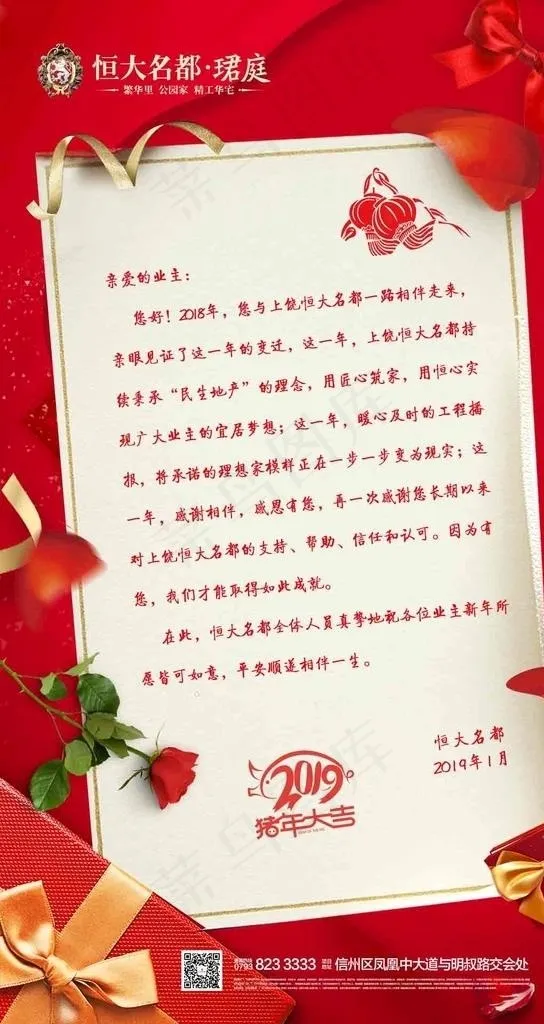 恒大名都·珺庭
繁华里 公园家 精工华宅
亲爱的业主：
您好！2018年，您与上饶恒大名都一路相伴走来，
亲眼见证了这一年的变迁，这一年，上饶恒大名都持
续秉承“民生地产”的理念，用匠心筑家，用恒心实
现广大业主的宜居梦想；这一年，暖心及时的工程播
报，将承诺的理想家模样正在一步一步变为现实；这
一年，感谢相伴，感恩有您，再一次感谢您长期以来
对上饶恒大名都的支持、帮助、信任和认可。因为有
您，我们才能取得如此成就。
在此，恒大名都全体人员真挚地祝各位业主新年所
愿皆可如意，平安顺遂相伴一生。
恒大名都
2019年1月
2019
猪年大吉
0793 823 3333 项目地址 信州区凤凰中大道与明叔路交会处
菜鸟图库